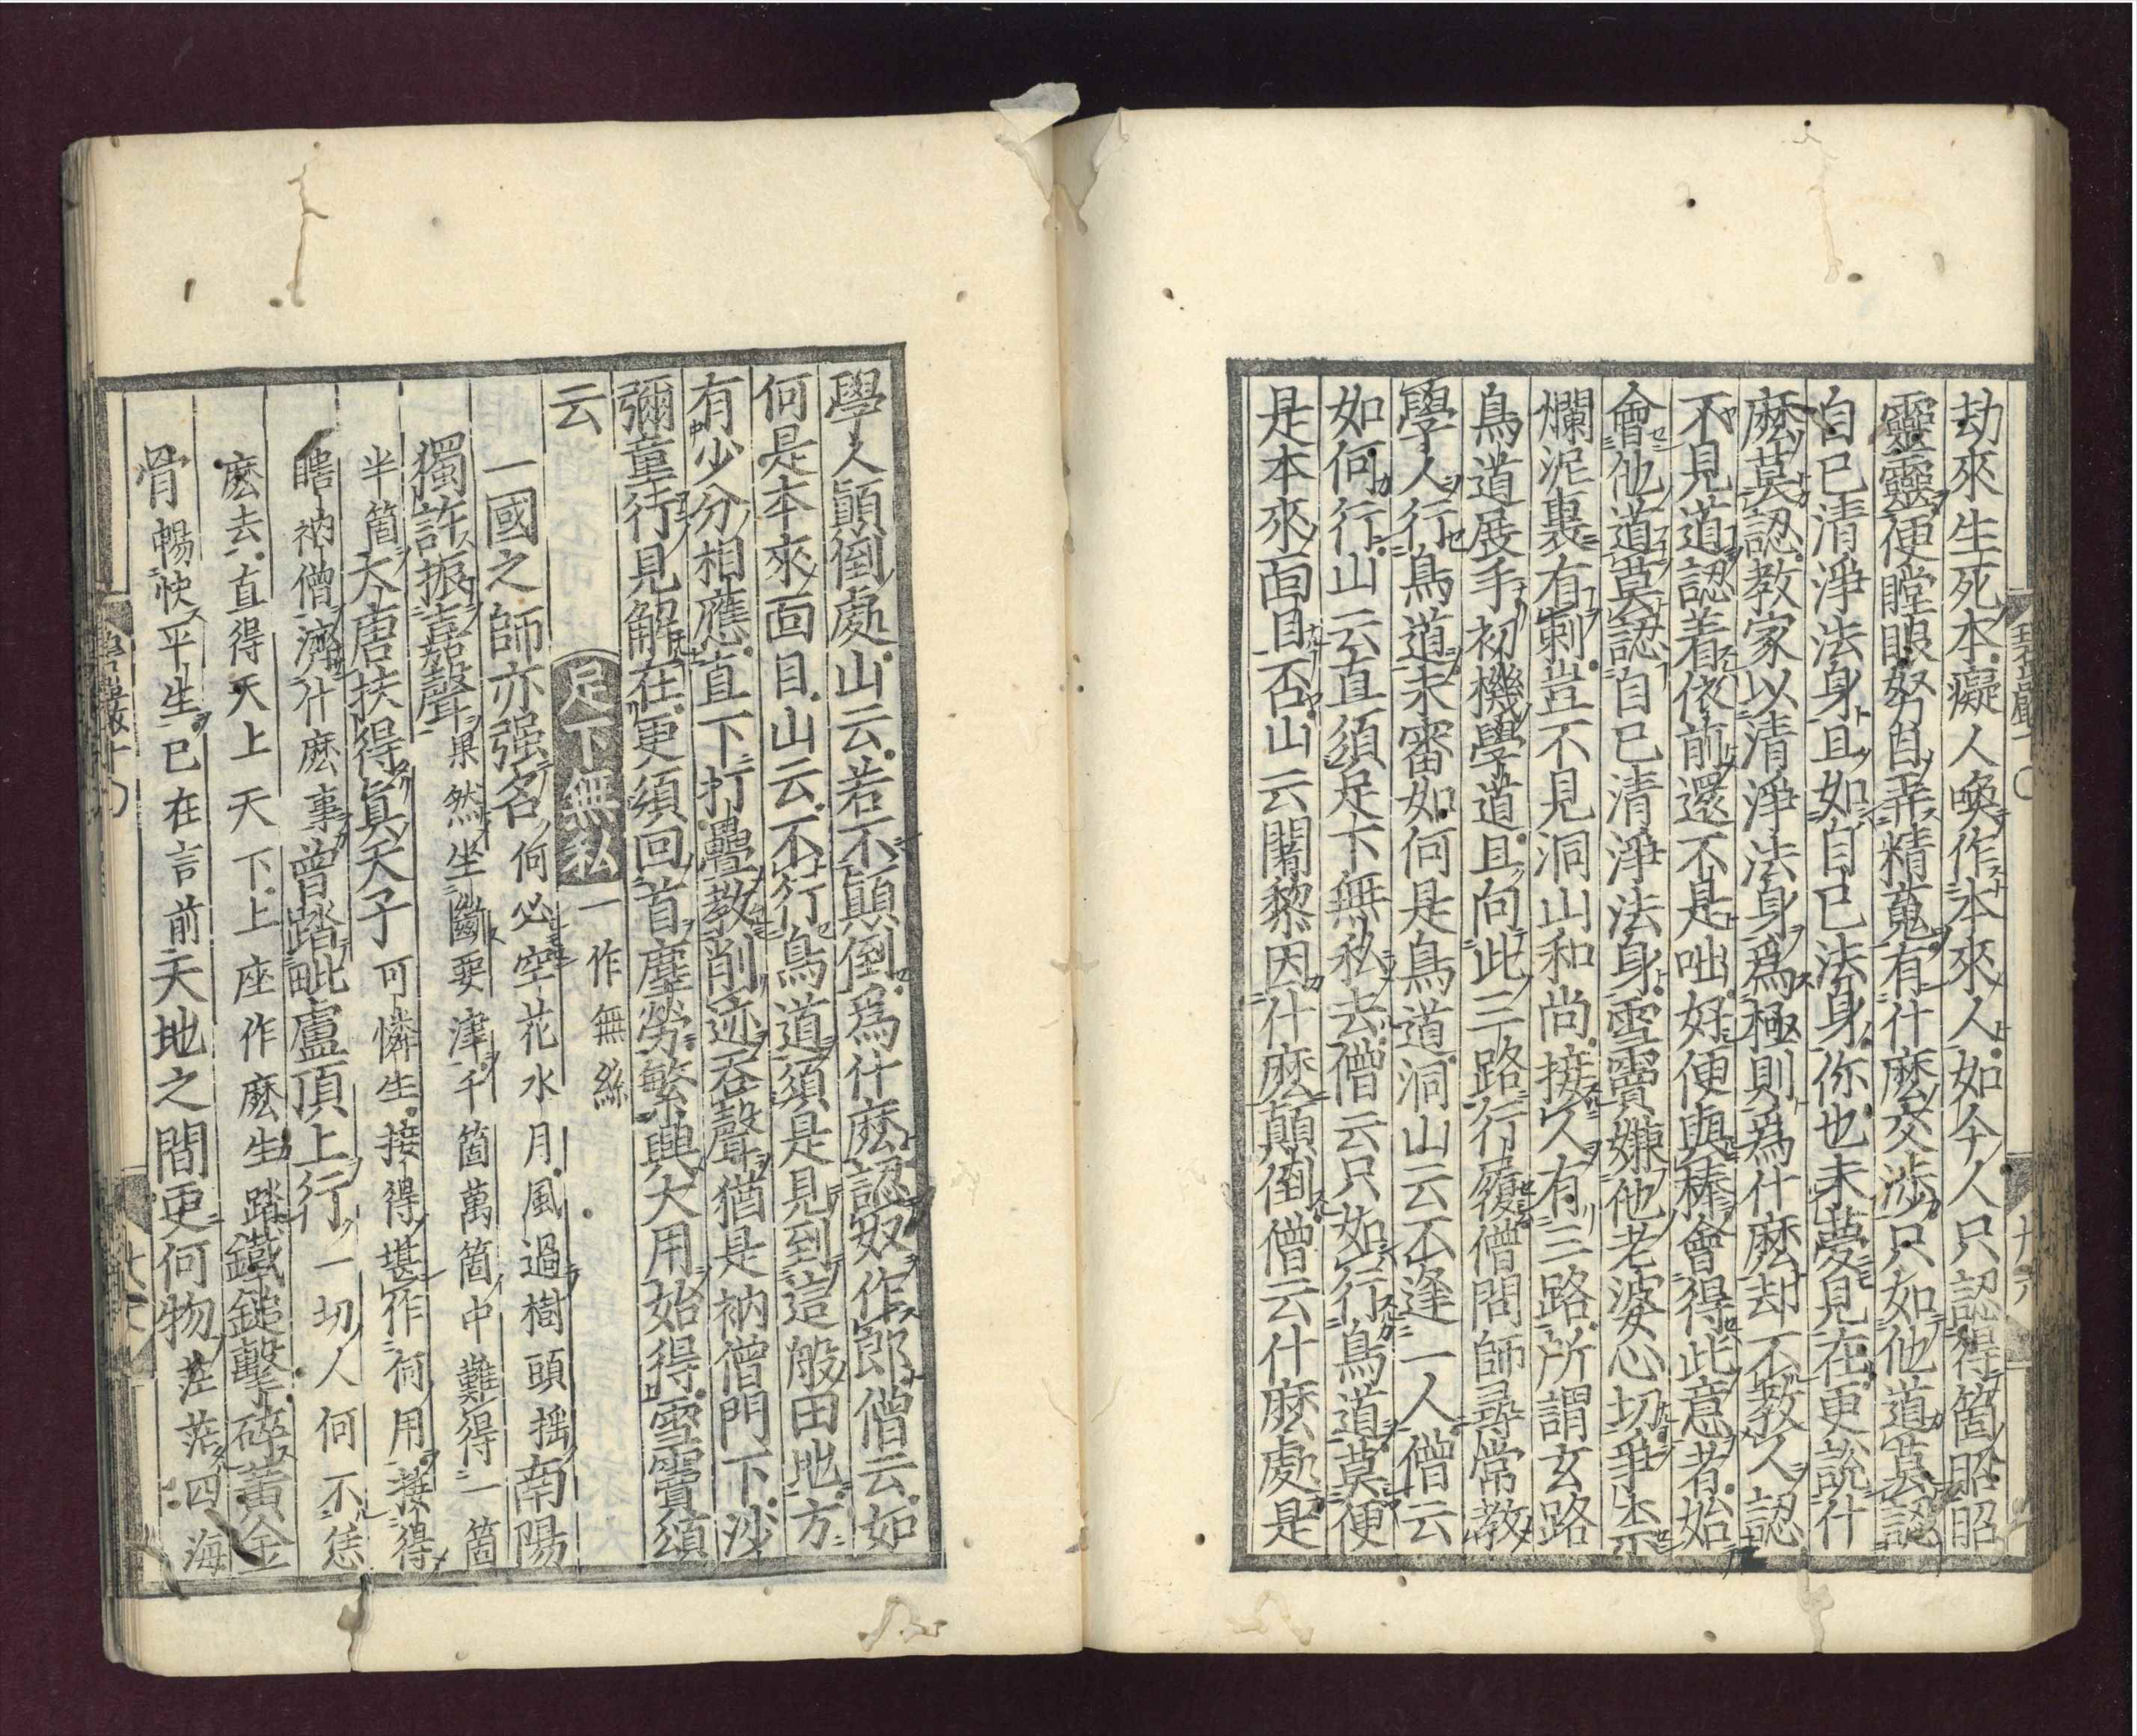 劫來生死本癡人喚作本來人如今人只認得箇昭昭
靈靈便瞠眼努目弄精䰟有什麼交涉只如他道莫認
自己清淨法身且如自己法身你也未夢見在更說什
麼莫認教家以清淨法身爲極則爲什麼却不教人認
不見道認着依前還不是咄好便與棒會得此意者始
會他道莫認自己清淨法身雪竇嫌他老婆心切爭柰
爛泥裏有刺豈不見洞山和尚接人有三路所謂玄路
鳥道展手初機學道且向此三路行履僧問師尋常教
學人行鳥道未審如何是鳥道洞山云不逢一人僧云
如何行山云直須足下無私去僧云只如行鳥道莫便
是本來面目否山云闍黎因什麼顛倒僧云什麼處是
學人顛倒處山云若不顛倒爲什麼認奴作郎僧云如
何是本來面目山云不行鳥道須是見到這般田地方
有少分相應直下打疊教削迹吞聲猶是衲僧門下沙
彌童行見解在更須回首塵勞繁興大用始得雪竇頌
云 足下無私一作無絲
一國之師亦强名何必空花水月風過樹頭搖南陽
獨許振嘉聲果然坐斷要津千箇萬箇中難得一箇
半箇大唐扶得眞天子可憐生接得堪作何用接得
瞎衲僧濟什麼事曾踏毗盧頂上行一切人何不恁
麼去直得天上天下上座作麼生踏鐵鎚擊碎黃金
骨暢快平生已在言前天地之間更何物茫茫四海